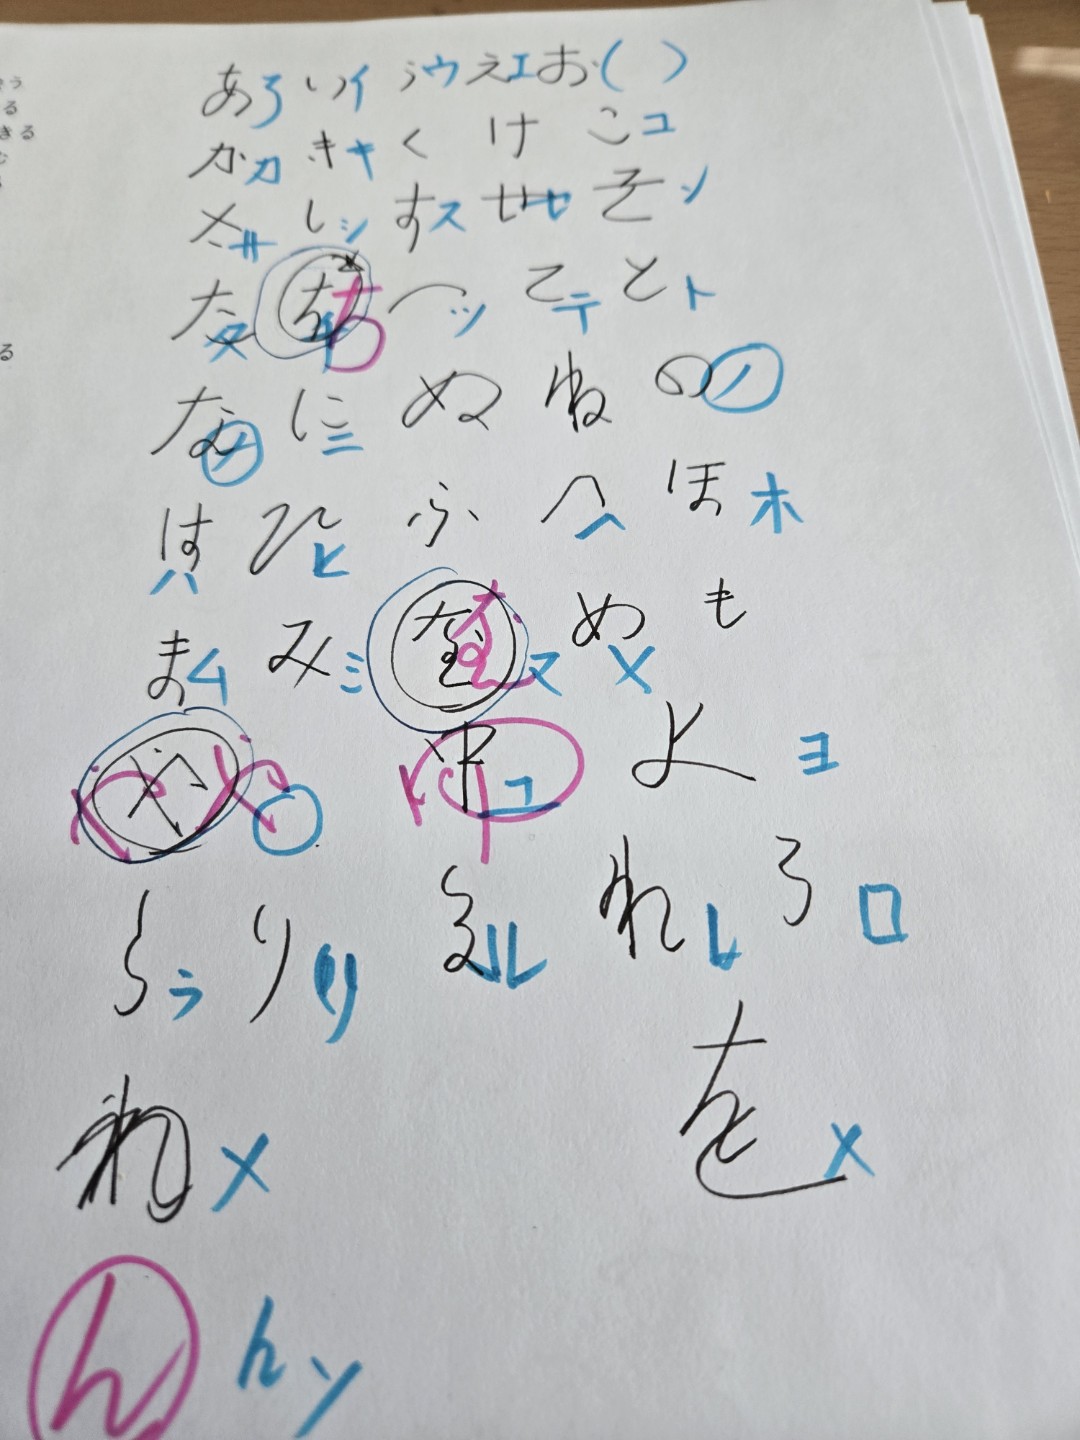 あ い イ う ウ え エ お ( )
か カ き キ く け こ コ
さ サ し シ す ス せ セ そ ソ
た タ ち チ つ ッ て テ と ト
な ノ に ニ ぬ ね の ノ
は ハ ひ ヒ ふ へ ヘ ほ ホ
ま ム み ミ む ヌ め メ も
や ゆ ユ よ ヨ
ら ラ り リ る ル れ レ ろ ロ
わ メ を メ
ん ん ソ
う
る
きる
る